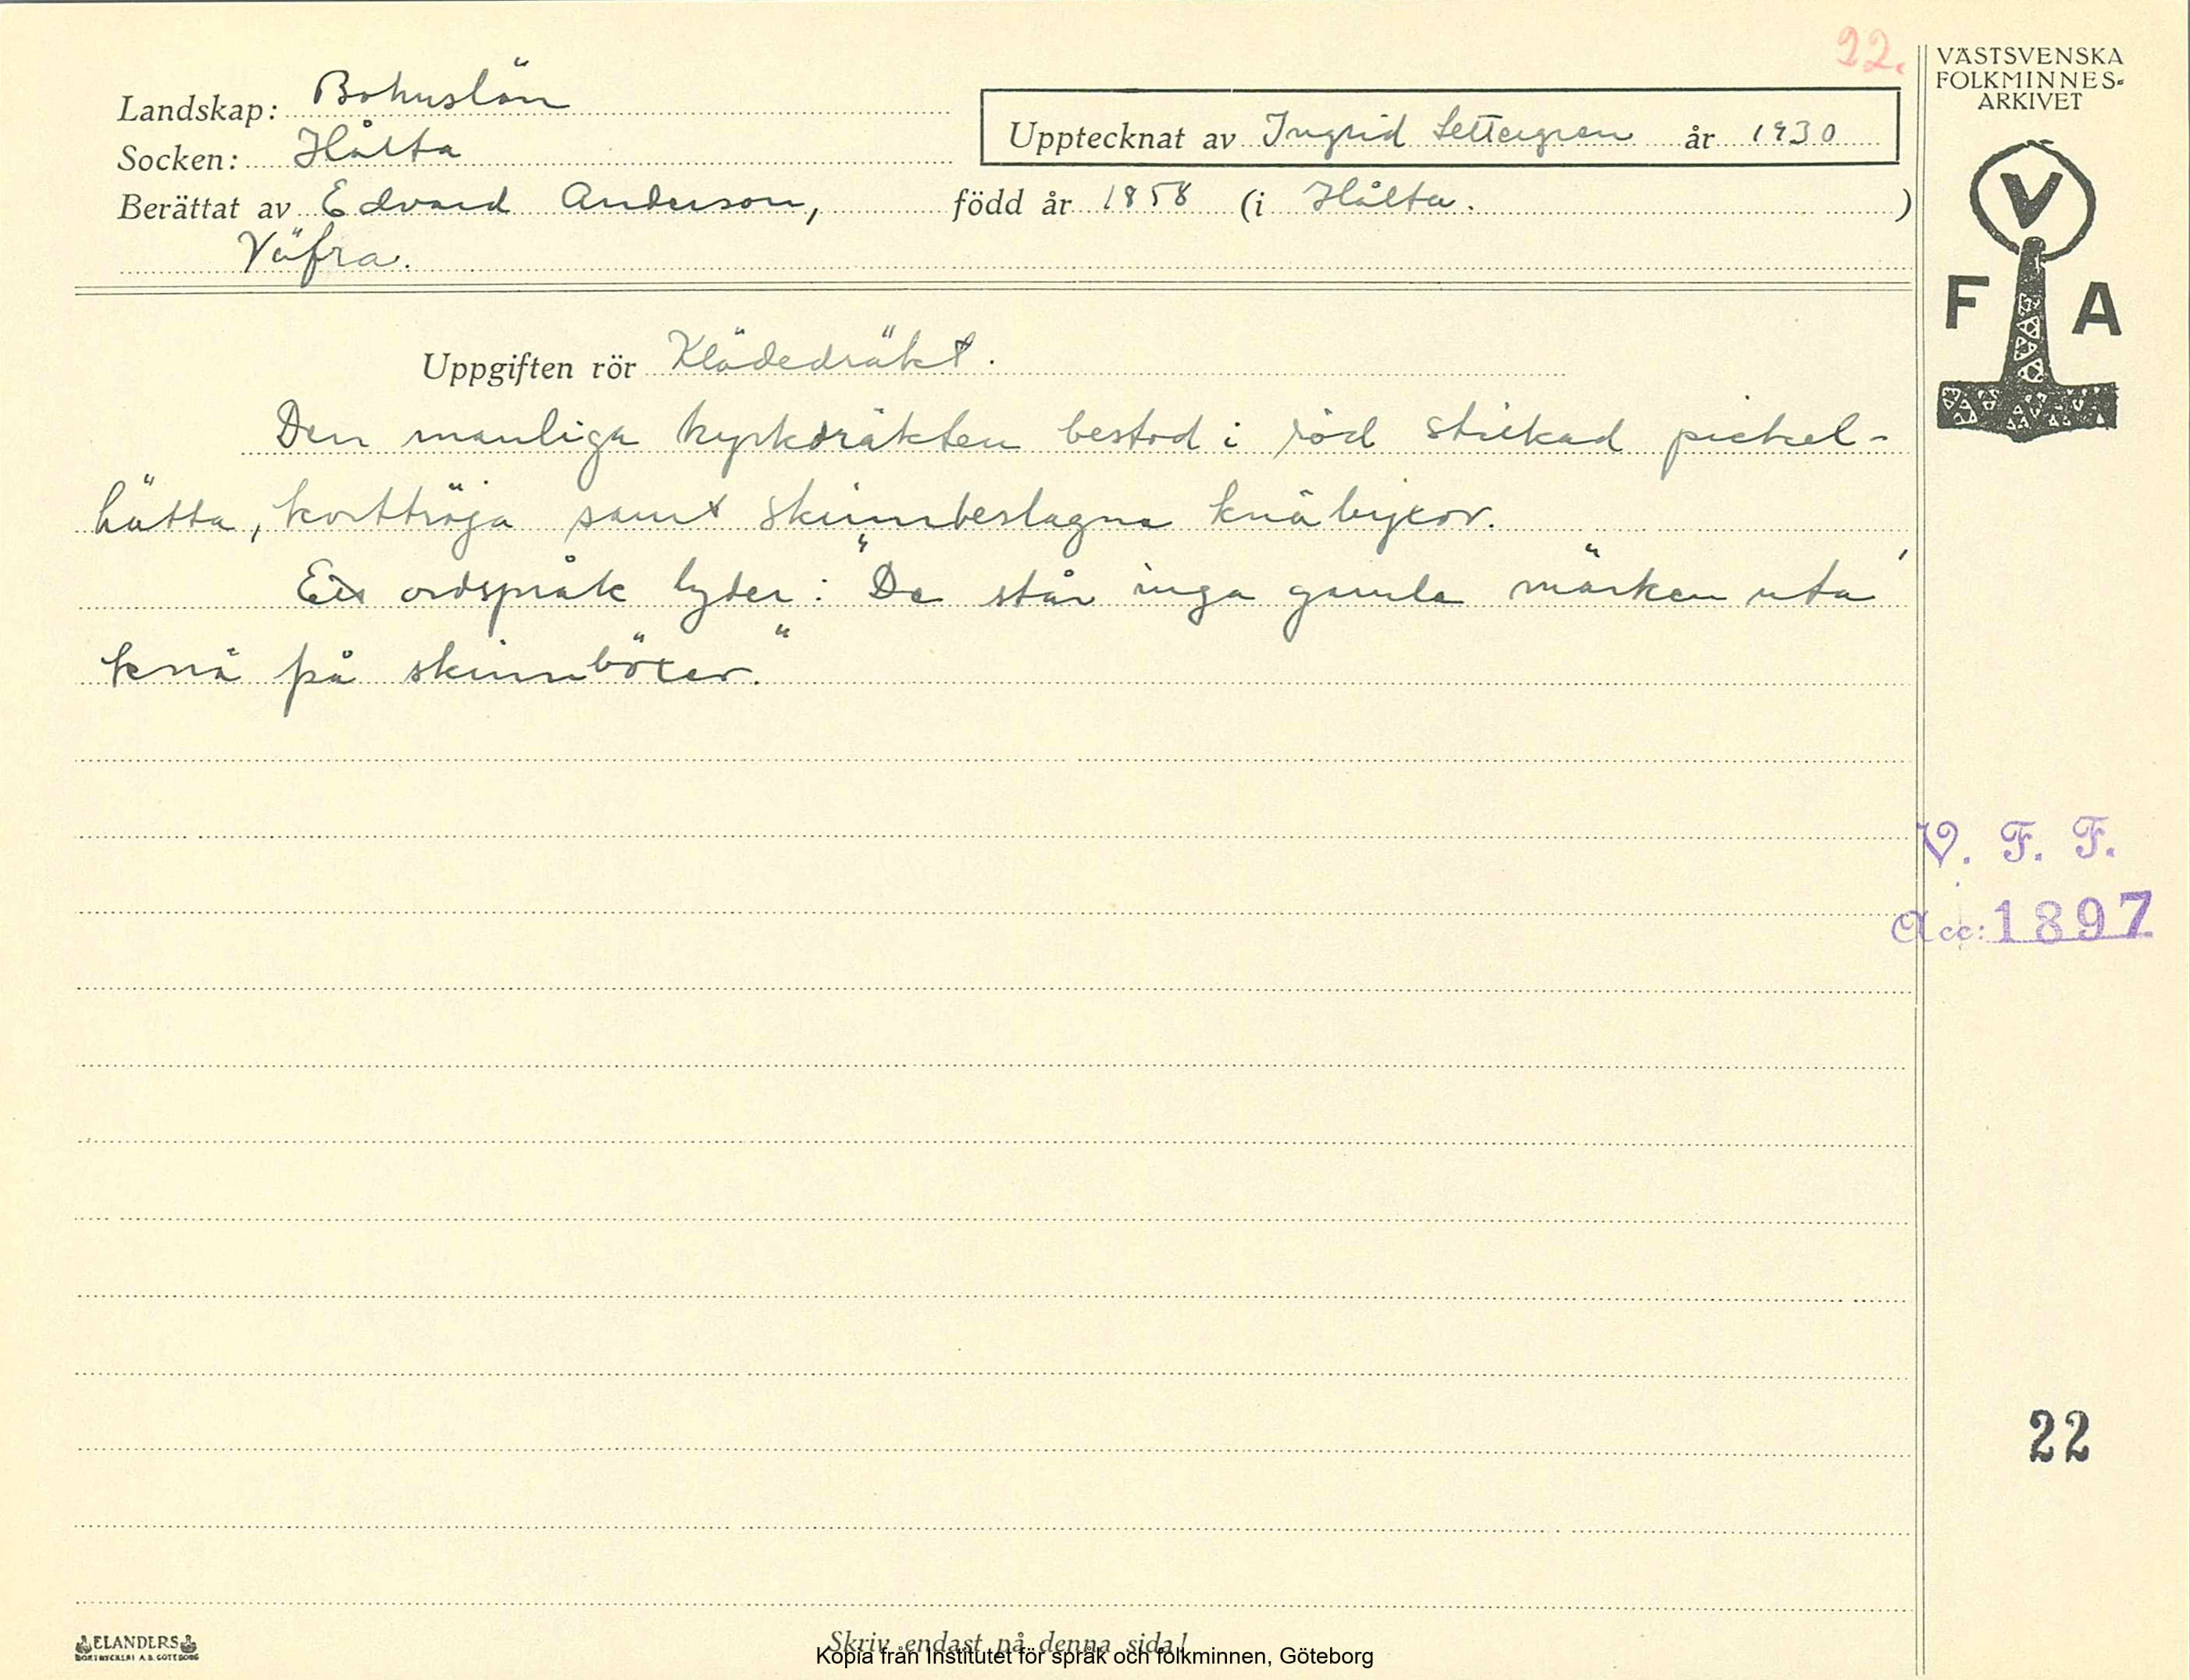 22.
VÄSTSVENSKA
FOLKMINNES-
ARKIVET
Landskap: Bohuslän
Upptecknat av Ingrid Settergren år 1930
Socken: Hålta
Berättat av Edvard Anderson, född år 1858 (i Hålta.)
Väfra.
V
F A
Uppgiften rör Klädedräkt.
Den manliga kyrkdräkten bestod i röd stickad pickel-
hätta, korttröja samt skinnbeslagna knäbyxor.
Ett ordspråk lyder: "De står inga gamla märken uta'
knä på skinnböxer."
V. F. F.
Acc: 1897
22
ELANDERS
BOKTRYCKERI A.B. GÖTEBORG
Skriv endast på denna sida!
Kopia från Institutet för språk och folkminnen, Göteborg